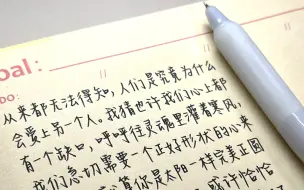 oal:
DO:
从来都无法得知,人们是究竟为什么
会爱上另一个人。我猜也许我们心上都
有一个缺口,呼呼往灵魂里灌着寒风,
我们急切需要一个正好形状的心来
太阳一样完美正圆